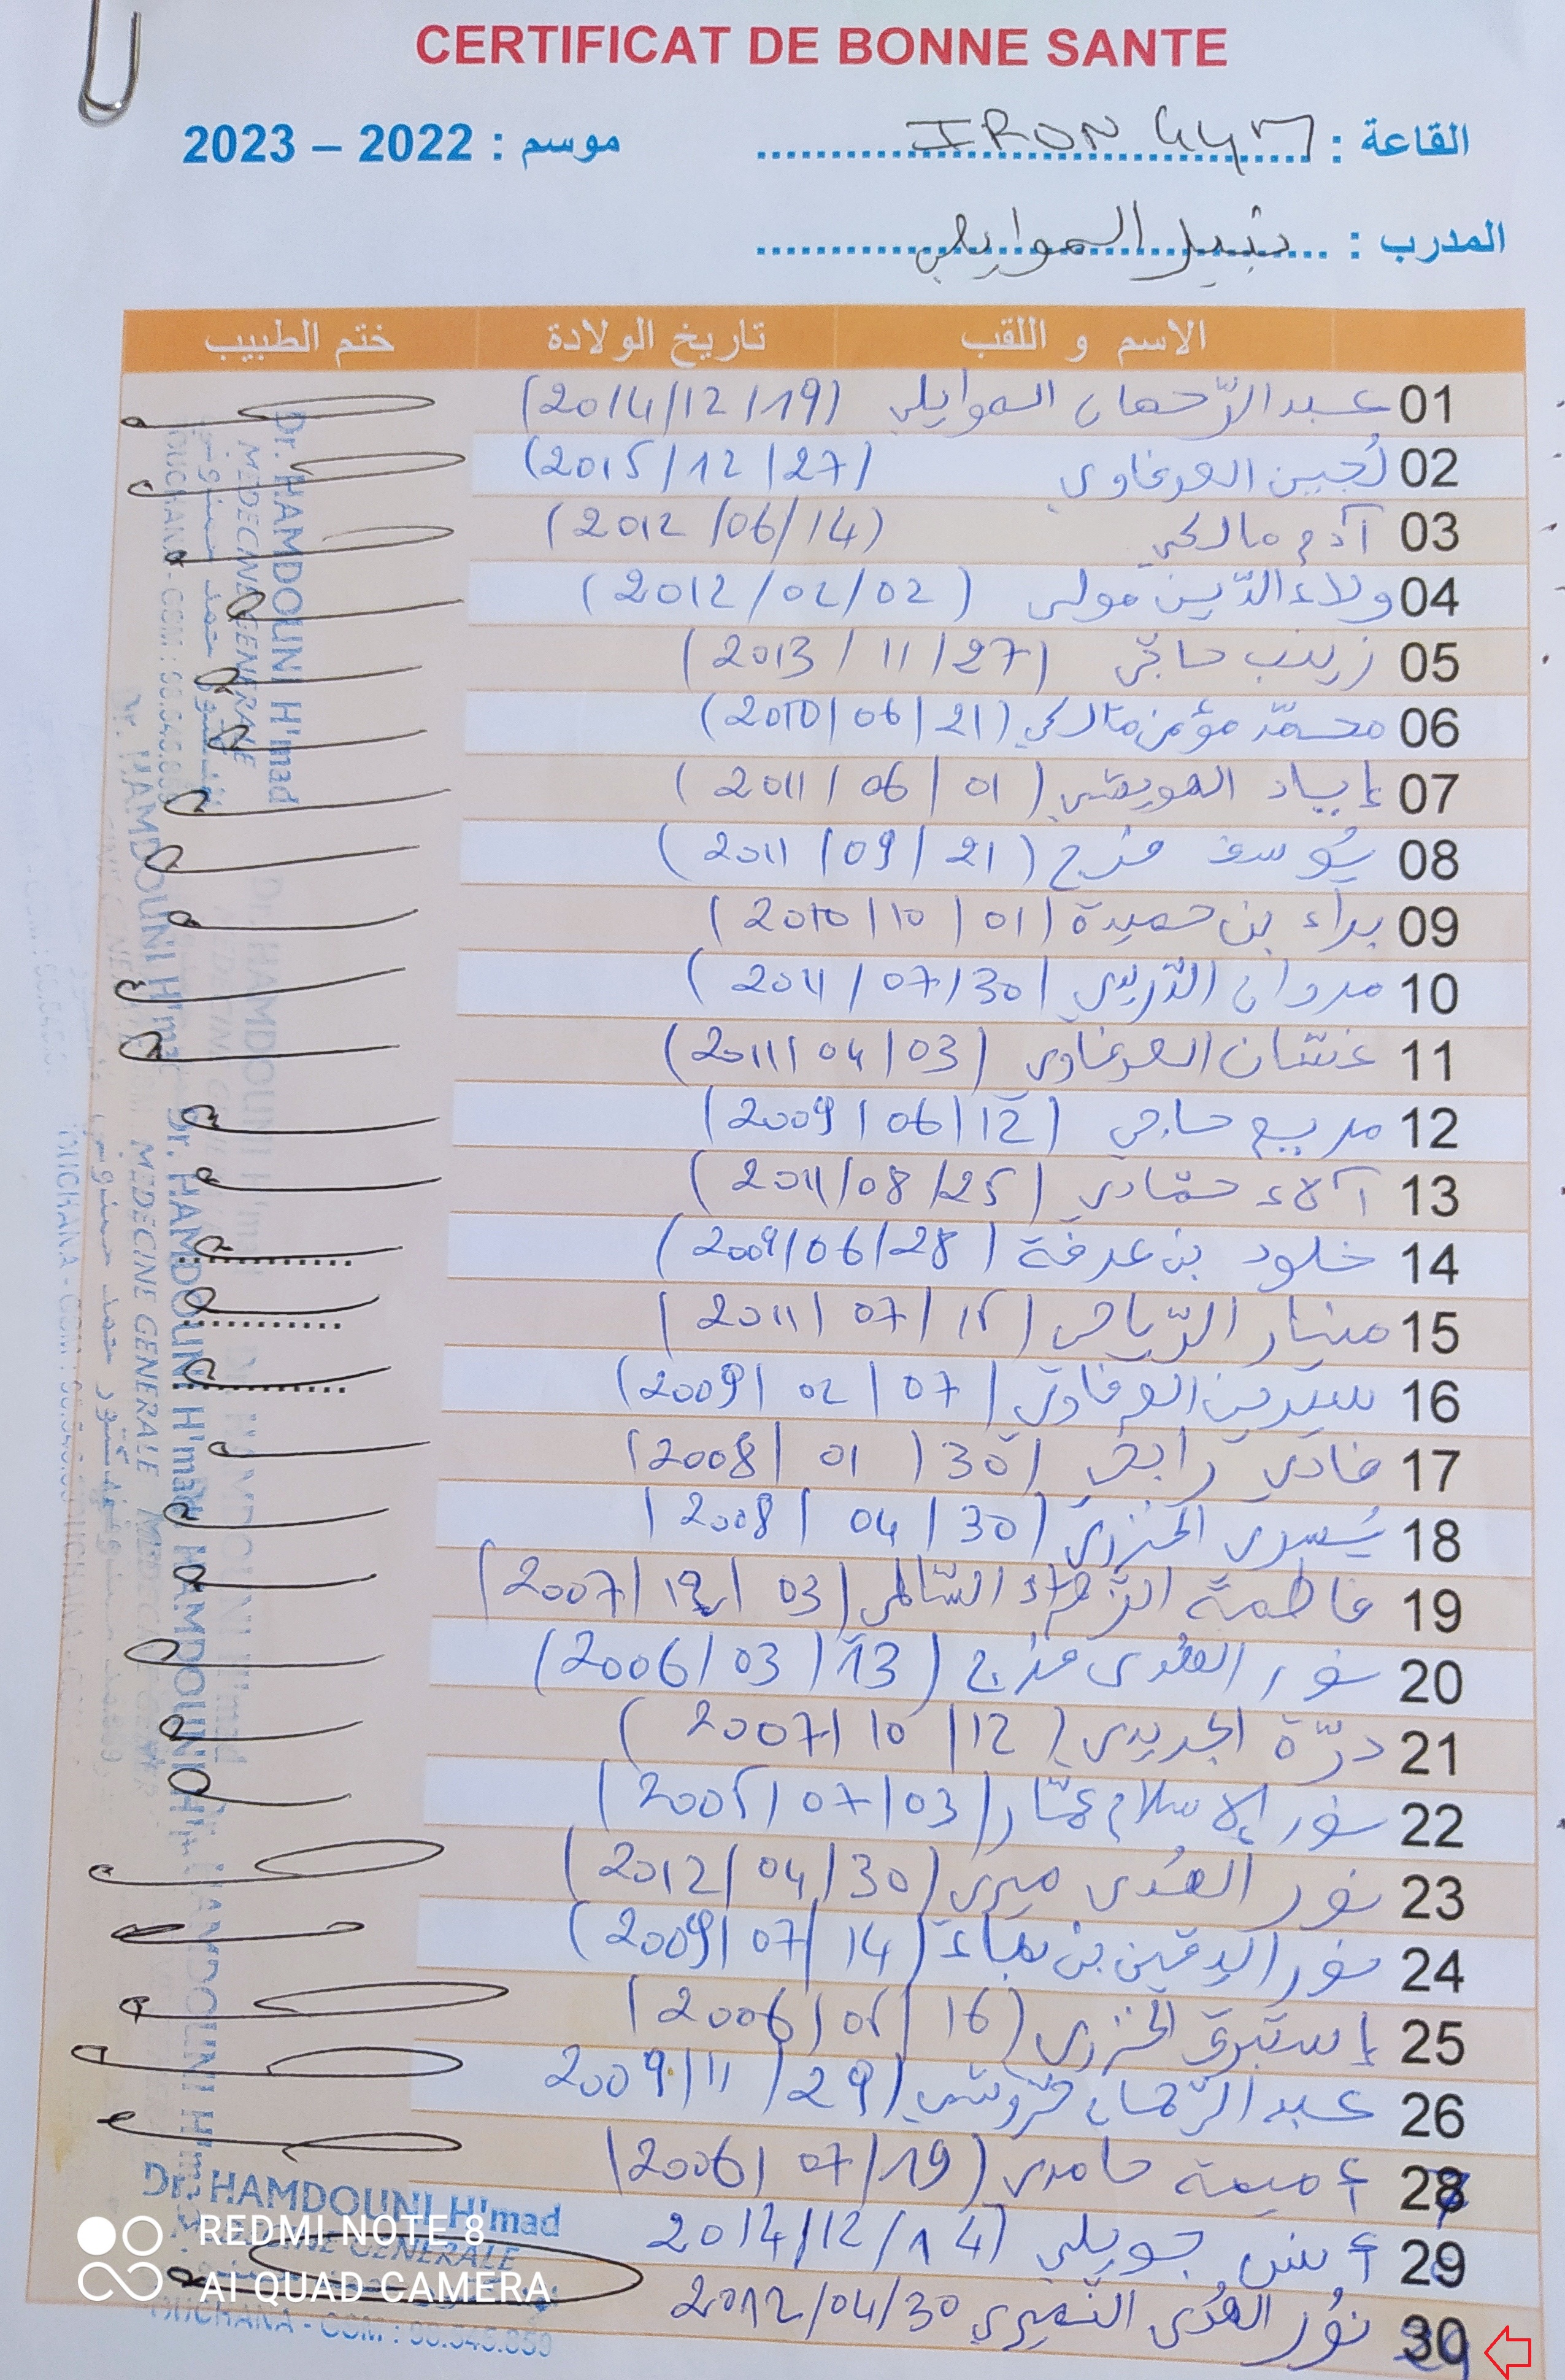 CERTIFICAT DE BONNE SANTE
القاعة : IRON GYM موسم : 2022 – 2023
المدرب : نبيل الموايهي
الاسم و اللقب تاريخ الولادة ختم الطبيب
01 عبد الرّحمان (2014/12/19)
02 لُجين (2015/12/27)
03 آدم مالكي (2012/06/14)
04 ولاء الدّين مولى (2012/02/02)
05 زينب حاجّي (2013/11/27)
06 محمّد مؤمن مالكي (2010/06/21)
07 إياد (2011/06/01)
08 يُوسف فرج (2011/09/21)
09 براء بن حميدة (2010/10/01)
10 مروان (2011/07/30)
11 غسّان (2011/04/03)
12 مريم حاجي (2009/06/12)
13 آلاء حمّادي (2011/08/25)
14 خلود بن عرفة (2009/06/28)
15 منار الرّياحي (2011/07/15)
16 سيرين (2009/02/07)
17 فادي رابحي (2008/01/30)
18 يُسرى (2008/04/30)
19 فاطمة الزّهراء السّالمي (2007/12/03)
20 نور الهُدى فرج (2006/03/13)
21 درّة الجديدي (2007/10/12)
22 نور الإسلام عمّار (2005/07/03)
23 نور الهُدى ميري (2012/04/30)
24 نور اليقين بن (2009/07/14)
25 إستبرق (2006/05/16)
26 عبد الرّحمان (2009/11/29
28 أميمة حامدي (2006/07/19)
29 أنس جويلي (2014/12/14
30 نُور الهُدى النّميري 2012/04/30
Dr. HAMDOUNI H'mad
MEDECINE GENERALE
Dr. HAMDOUNI H'mad
MEDECINE GENERALE
Dr. HAMDOUNI H'mad
REDMI NOTE 8
AI QUAD CAMERA